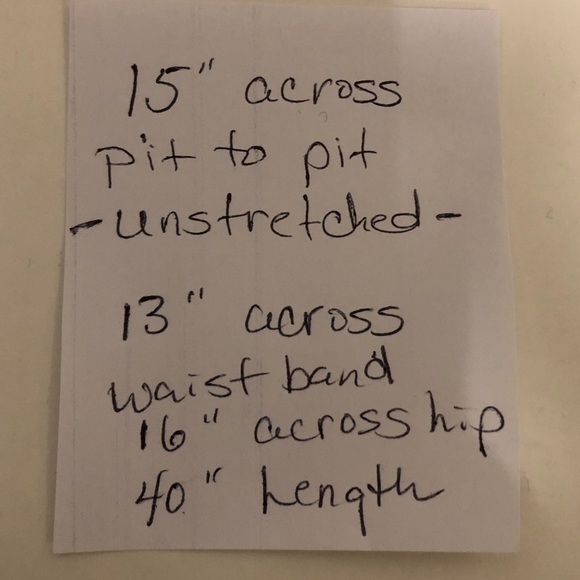 15" across
pit to pit
- unstretched -
13" across
waist band
16" across hip
40" Length